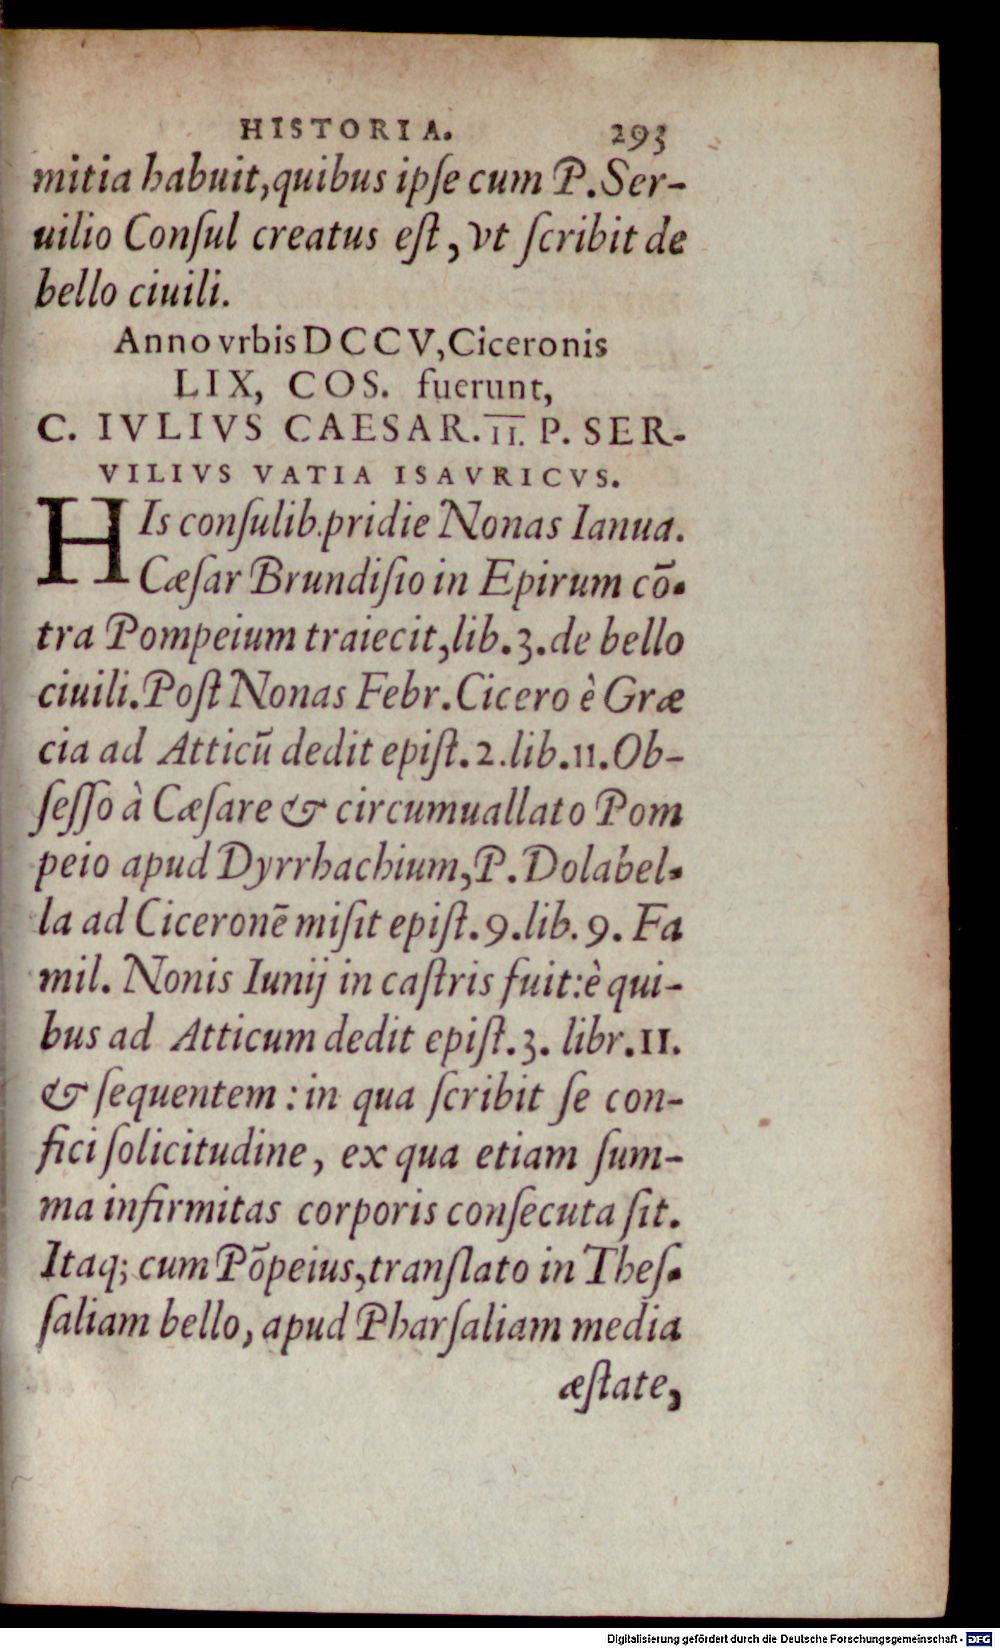 HISTORIA. 293
mitia habuit,quibus ipſe cum P.Ser-
uilio Conſul creatus eſt, vt ſcribit de
bello ciuili.
Anno vrbis DCCV,Ciceronis
LIX, COS. fuerunt,
C. IVLIVS CAESAR. II. P. SER-
VILIVS VATIA ISAVRICVS.
HIs conſulib.pridie Nonas Ianua.
Cæſar Brundiſio in Epirum cō-
tra Pompeium traiecit,lib.3.de bello
ciuili.Poſt Nonas Febr.Cicero è Græ
cia ad Atticū dedit epiſt.2.lib.11.Ob-
ſeſſo à Cæſare & circumuallato Pom
peio apud Dyrrhachium,P.Dolabel-
la ad Ciceronē miſit epiſt.9.lib.9. Fa
mil. Nonis Iunij in caſtris fuit:è qui-
bus ad Atticum dedit epiſt.3. libr.11.
& ſequentem : in qua ſcribit ſe con-
fici ſolicitudine, ex qua etiam ſum-
ma infirmitas corporis conſecuta ſit.
Itaq; cum Pōpeius,tranſlato in Theſ-
ſaliam bello, apud Pharſaliam media
æſtate,
Digitalisierung gefördert durch die Deutsche Forschungsgemeinschaft - DFG